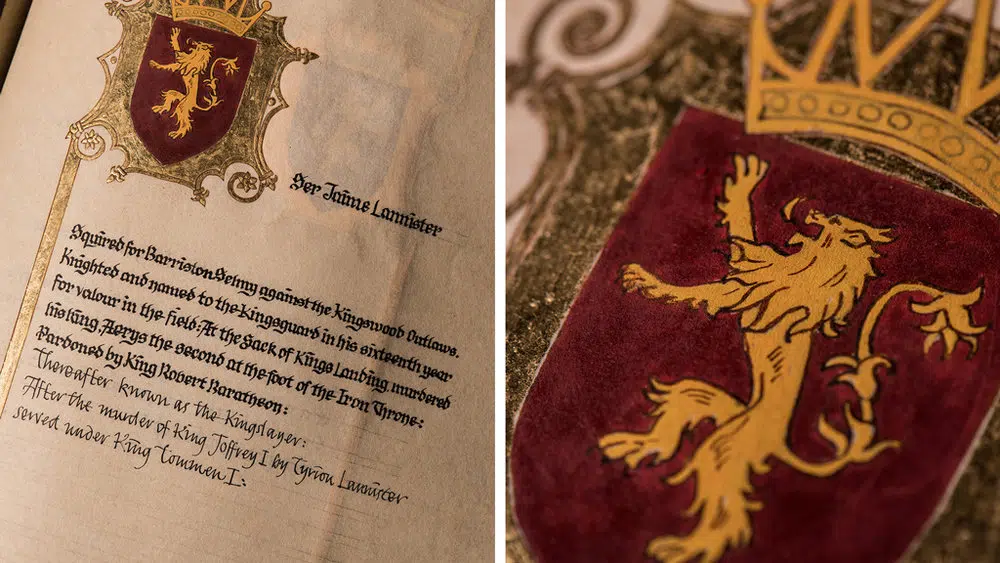 Ser Jaime Lannister
Squired for Barriston Selmy against the Kingswood Outlaws.
Knighted and named to the Kingsguard in his sixteenth year
for valour in the field: At the Sack of Kings Landing murdered
his king, Aerys the second at the foot of the Iron Throne:
Pardoned by King Robert Baratheon:
Thereafter known as the Kingslayer:
After the murder of King Joffrey I by Tyrion Lannister
served under King Tommen I: